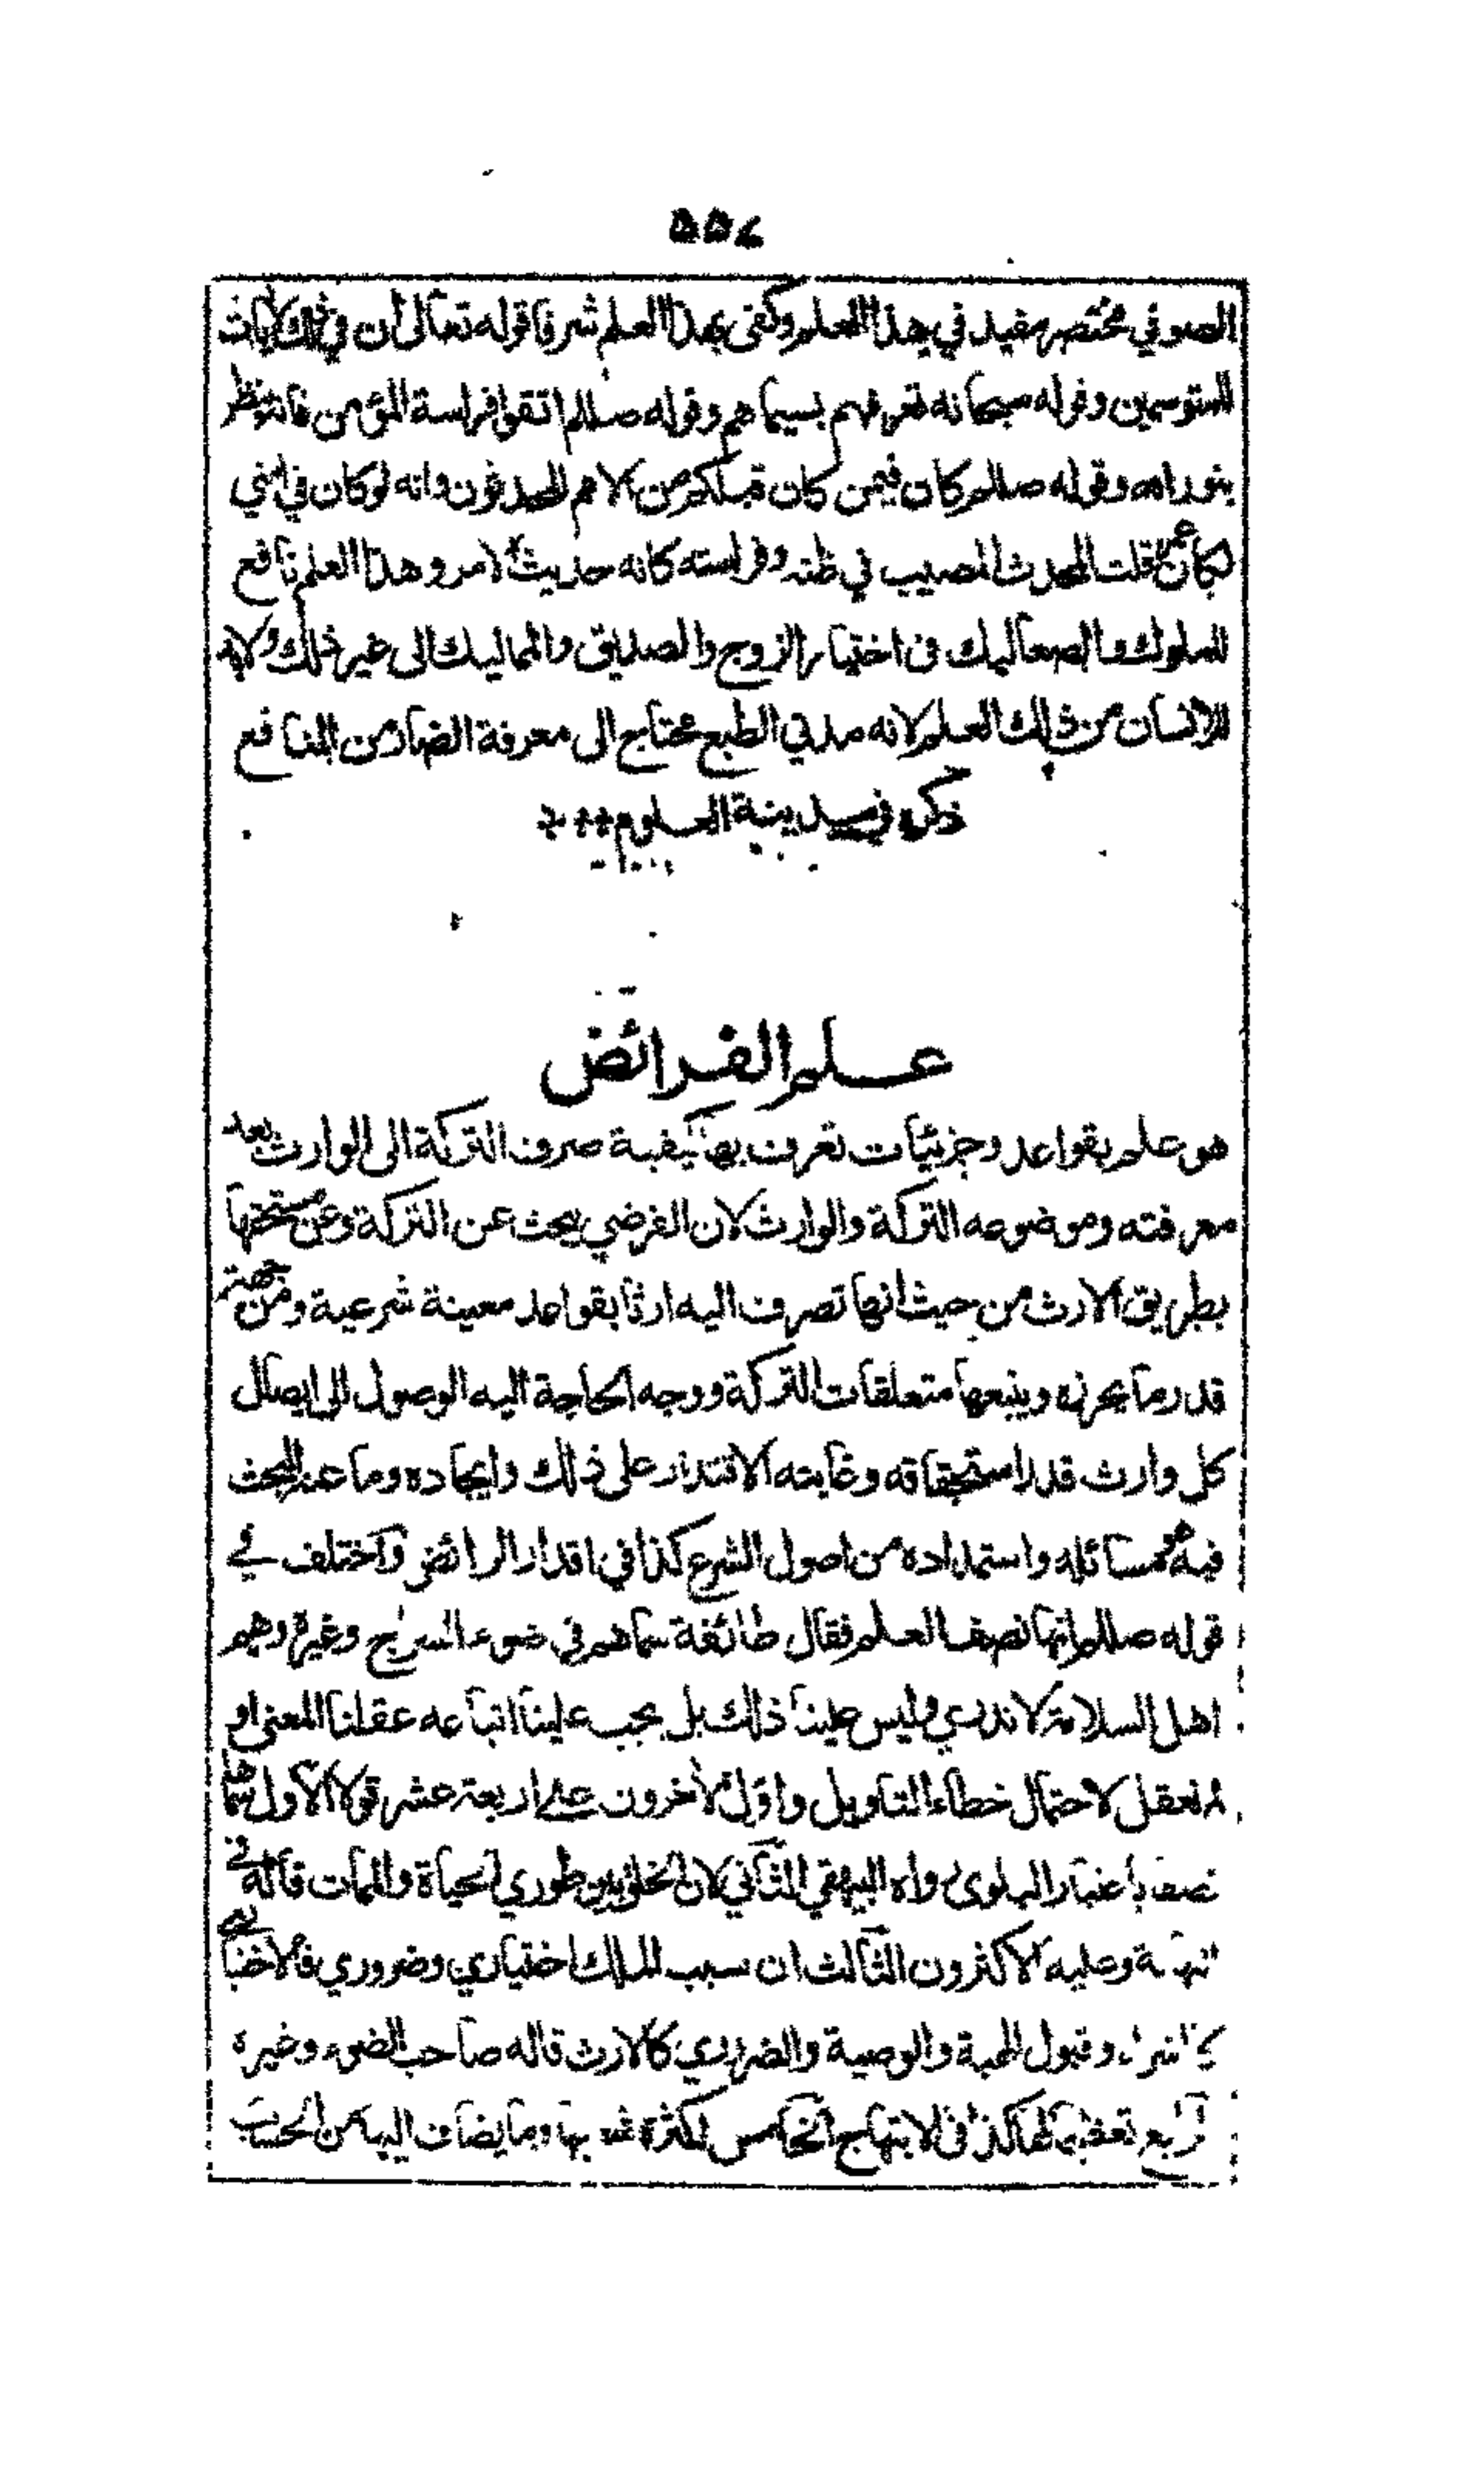 ۵۵۷
الصوفي مختصر مفيد في هذا العلم وكفى بهذا العلم شرفا قوله تعالى ان في ذلك لآيات
للمتوسمين وقوله سبحانه تعرفهم بسيماهم وقوله صللم اتقوا فراسة المؤمن فانه ينظر
بنور الله وقوله صللم كان فيمن كان قبلكم من الامم المحدثون وانه لو كان في امتي
لكان عمر قلت المحدث المصيب في ظنه وفراسته كانه حديث الامر وهذا العلم نافع
للملوك والصعاليك في اختيار الزوج والصديق والمماليك الى غير ذلك ولابد
للانسان من ذلك العلم لانه مدني الطبع محتاج الى معرفة الضار من النافع
ذكره في مدينة العلوم
علم الفرائض
هو علم بقواعد وجزئيات تعرف بها كيفية صرف التركة الى الوارث بعد
معرفته وموضوعه التركة والوارث لان الفرضي يبحث عن التركة وعن مستحقها
بطريق الارث من حيث انها تصرف اليه ارثا بقواعد معينة شرعية ومن جهة
قدر ما يحرزه ويتبعها متعلقات التركة ووجه الحاجة اليه الوصول الى ايصال
كل وارث قدر استحقاقه وغايته الاقتدار على ذلك وايجاده وما عنه البحث
فيه هو مسائله واستمداده من اصول الشرع كذا في اقدار الرائض واختلف في
قوله صللم انها نصف العلم فقال طائفة سماهم في ضوء السراج وغيره وهم
اهل السلامة لا ندري وليس علينا ذلك بل يجب علينا اتباعه عقلنا المعنى او
لم نعقل لاحتمال خطاء التاويل واوّل الآخرون على اربعة عشر قولا الاول سماها
نصفا باعتبار البلوى رواه البيهقي الثاني لان الخلق بين طوري الحياة والممات قاله في
النهاية وعليه الاكثرون الثالث ان سبب الملك اختياري وضروري فالاختياري
كالشراء وقبول الهبة والوصية والضروري كالارث قاله صاحب الضوء وغيره
الرابع تعظيما لها كذا في الابتهاج الخامس لكثرة شعبها وما يضاف اليها من الحساب